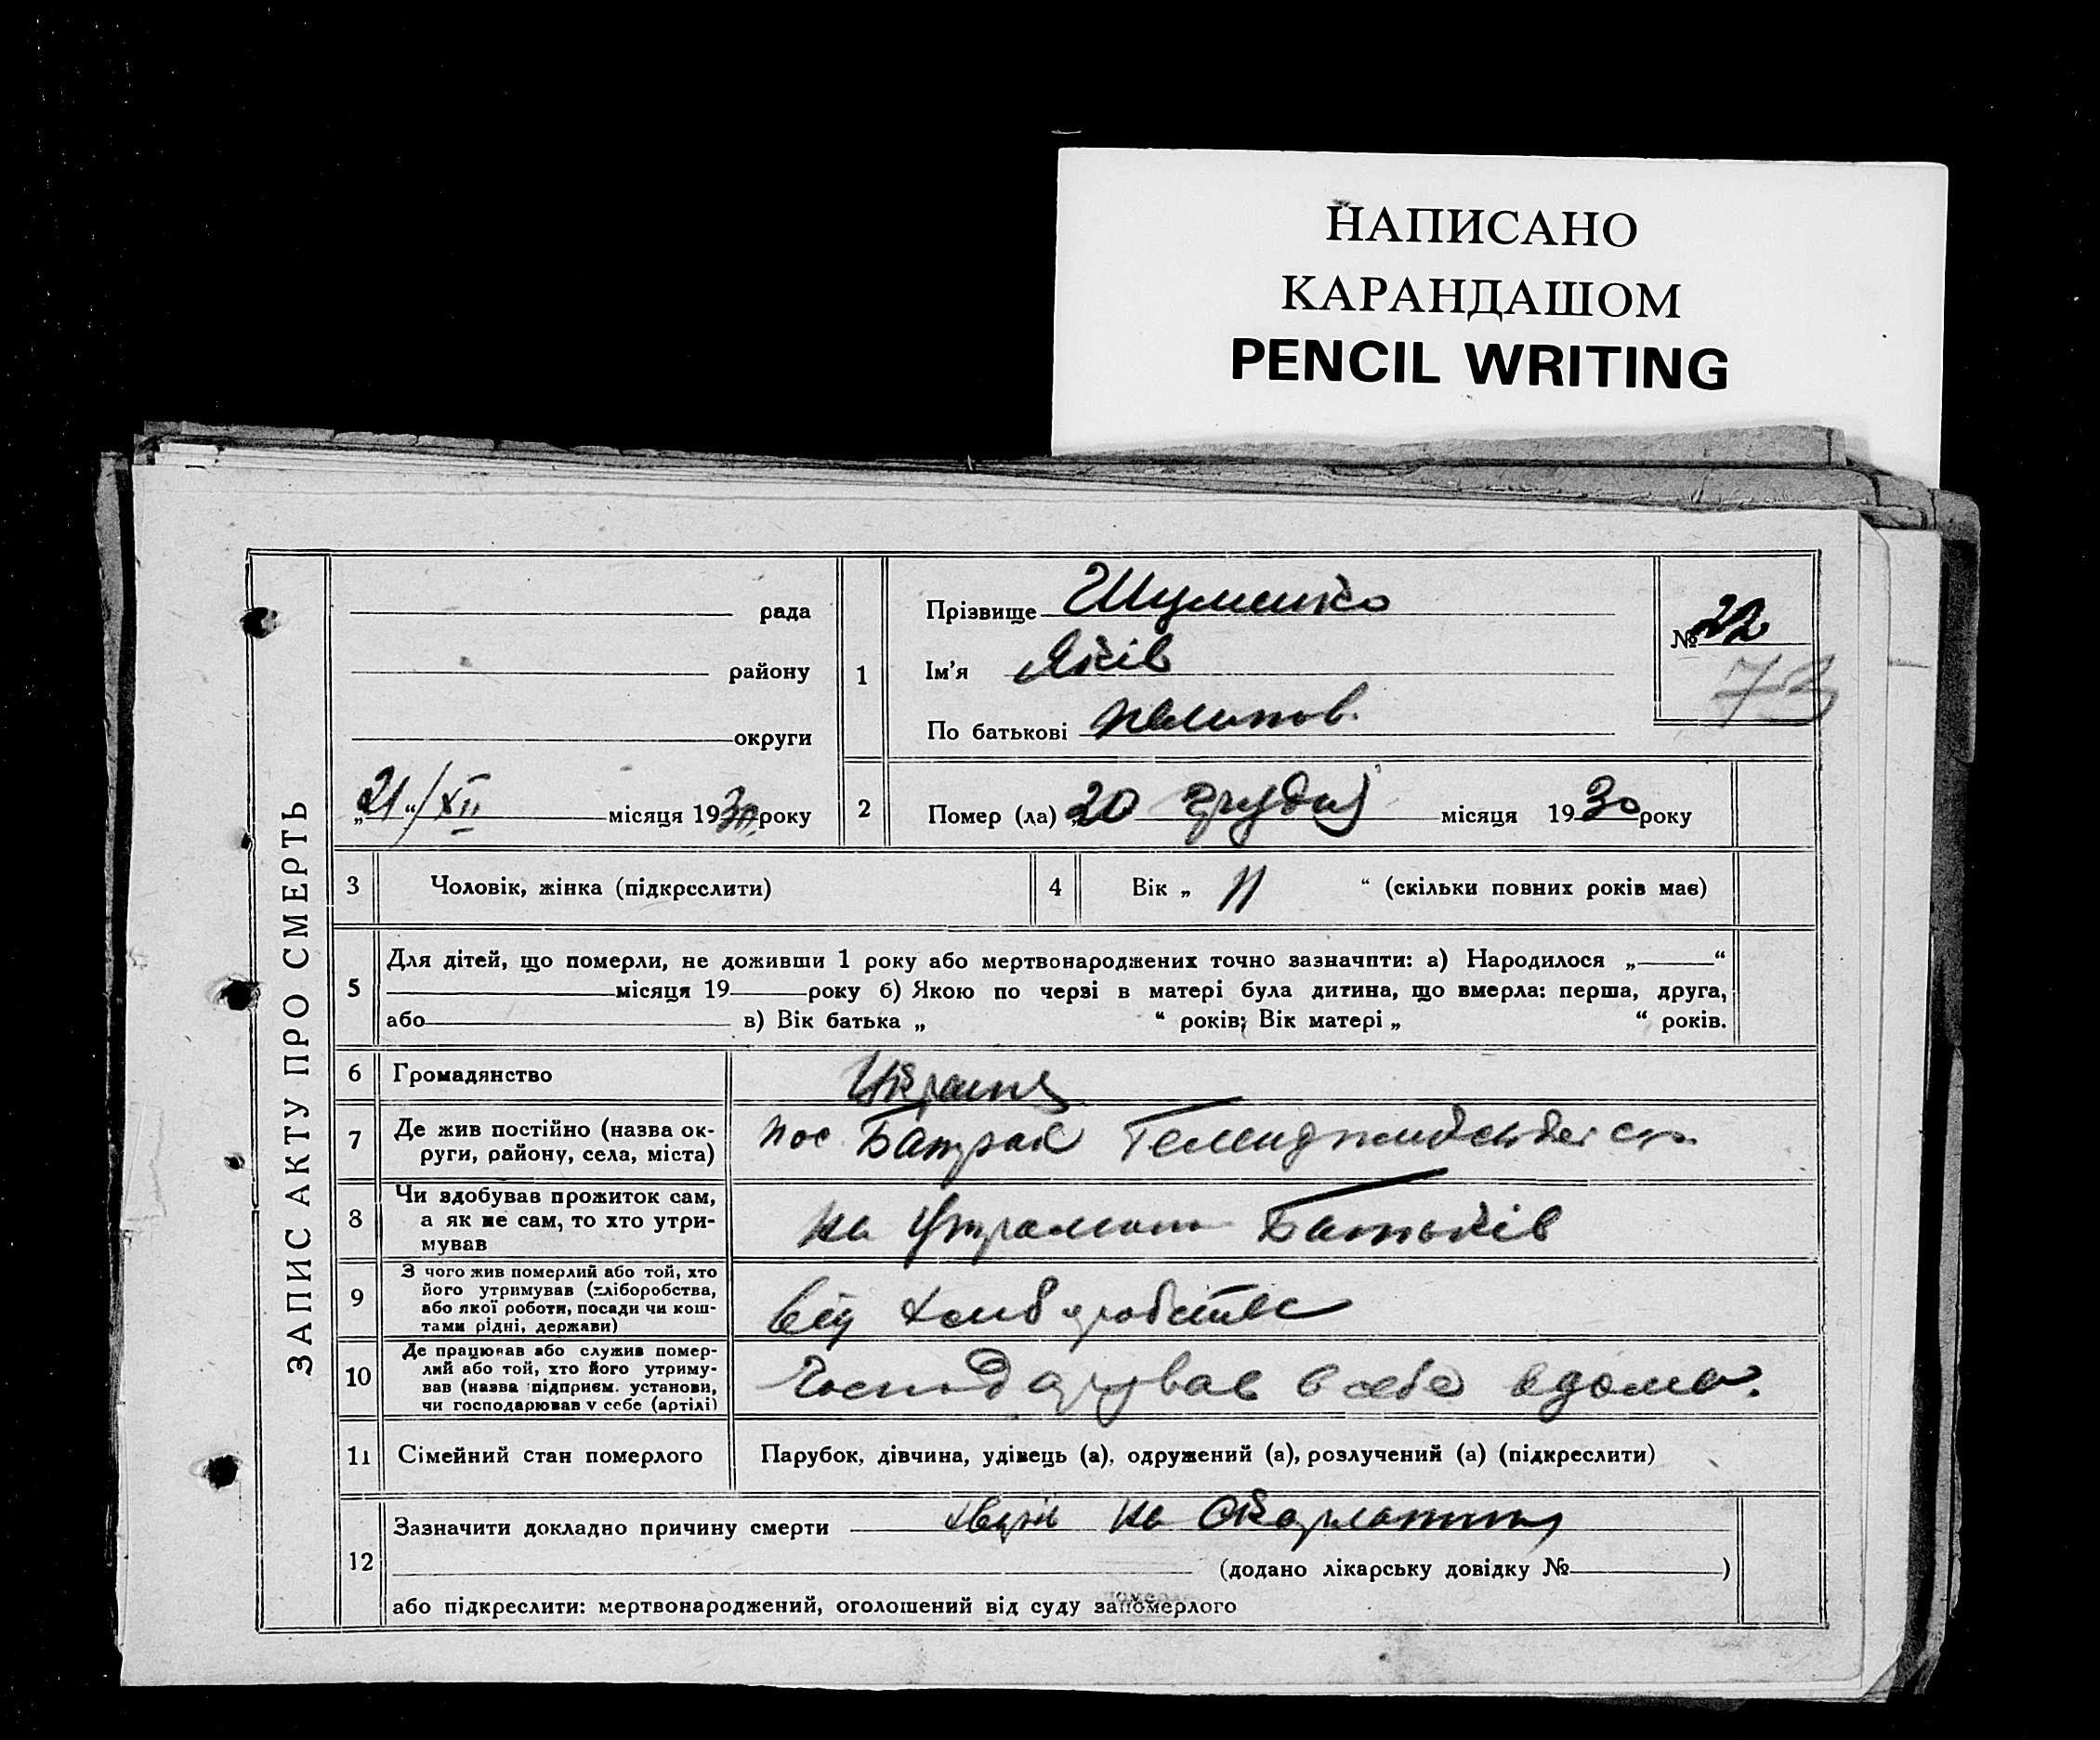 НАПИСАНО
КАРАНДАШОМ
PENCIL WRITING
ЗАПИС АКТУ ПРО СМЕРТЬ
рада
району
округи
„21“/XII місяця 1930 року
1
Прізвище Шуменко
Ім'я Яків
По батькові
№ 22
73
2 Помер (ла) „20 грудня місяця 1930 року
3 Чоловік, жінка (підкреслити)
4 Вік „ 11 “ (скільки повних років має)
5
Для дітей, що померли, не доживши 1 року або мертвонароджених точно зазначити: а) Народилося „ “
місяця 19 року б) Якою по черзі в матері була дитина, що вмерла: перша, друга,
або в) Вік батька „ “ років; Вік матері „ “ років.
6 Громадянство
7
Де жив постійно (назва ок-
руги, району, села, міста)
пос Батрак
8
Чи здобував прожиток сам,
а як не сам, то хто утри-
мував
на Батьків
9
З чого жив померлий або той, хто
його утримував (хліборобства,
або якої роботи, посади чи кош-
тами рідні, держави)
від
10
Де працював або служив помер-
лий або той, хто його утриму-
вав (назва підприєм. установи,
чи господарював у себе (артілі)
Господарував в себе вдома.
11 Сімейний стан померлого
Парубок, дівчина, удівець (а), одружений (а), розлучений (а) (підкреслити)
12
Зазначити докладно причину смерти на
(додано лікарську довідку № )
або підкреслити: мертвонароджений, оголошений від суду за померлого